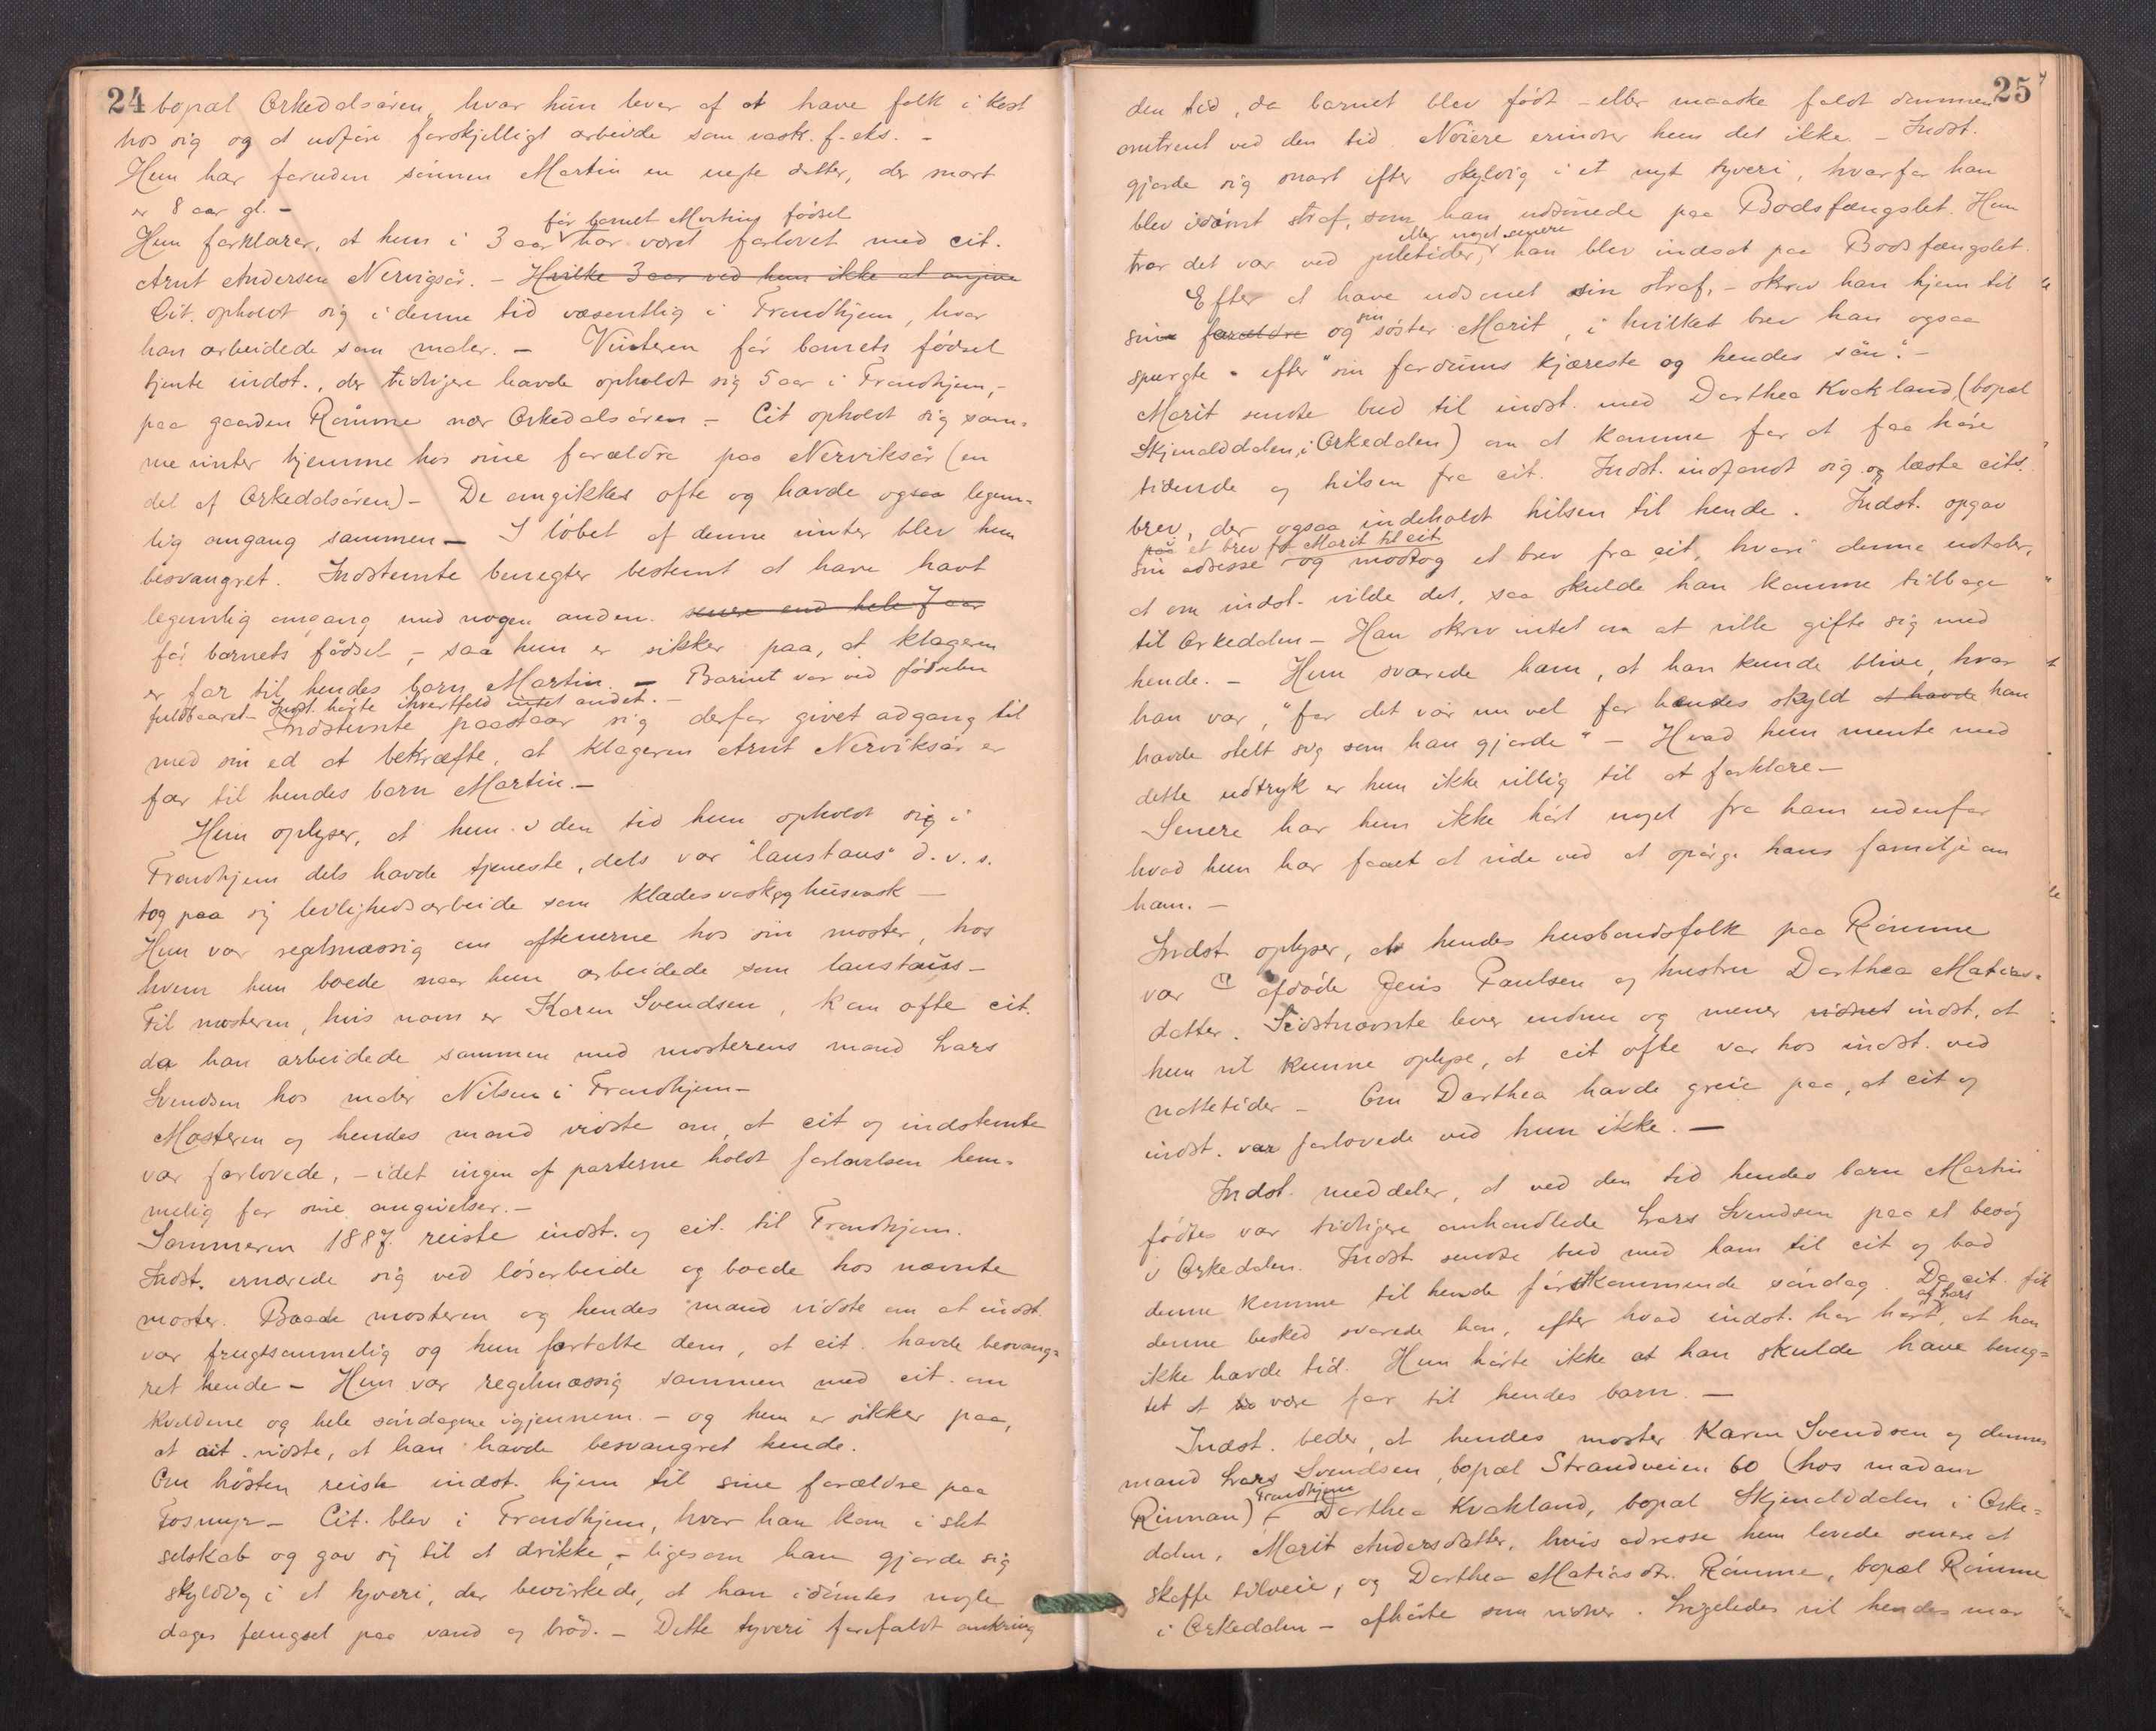 24
bopæl Orkedalsøren, hvor hun lever af at have folk i kost
hos sig og at udføre forskjelligt arbeide som vask. f. eks. -
Hun har foruden sønnen Martin en uegte datter, der snart
er 8 aar gl. -
før barnet Martins fødsel
Hun forklarer, at hun i 3 aar har været forlovet med cit.
Arnt Andersen Nervigsør. - Hvilke 3 aar ved hun ikke at angive
Cit. opholdt sig i denne tid væsentlig i Trondhjem, hvor
han arbeidede som maler. - Vinteren før barnets fødsel
tjente indst., der tidligere havde opholdt sig 5 aar i Trondhjem, -
paa gaarden Rømme nær Orkedalsøren - Cit opholdt sig sam-
me vinter hjemme hos sine forældre paa Nerviksør (en
del af Orkedalsøren) - De omgikkes ofte og havde ogsaa legem-
lig omgang sammen - I løbet af denne vinter blev hun
besvangret. Indstemte benegter bestemt at have havt
legemlig omgang med nogen anden. senere end hele 7 aar
før barnets fødsel, - saa hun er sikker paa, at klageren
er far til hendes barn Martin. - Barnet var ved fødselen
fuldbaaret - Indst. hørte ihvertfald intet andet. -
Indstemte paastaar sig derfor givet adgang til
med sin ed at bekræfte, at klageren Arnt Nerviksør er
far til hendes barn Martin. -
Hun oplyser, at hun i den tid hun opholdt sig i
Trondhjem dels havde tjeneste, dels var "laustaus" d. v. s.
tog paa sig leilighedsarbeide som klædesvask og husvask -
Hun var regelmæssig om aftenerne hos sin moster, hos
hvem hun boede naar hun arbeidede som laustauss -
Til mosteren, hvis navn er Karen Svendsen, kom ofte cit.
da han arbeidede sammen med mosterens mand Lars
Svendsen hos maler Nilsen i Trondhjem -
Mosteren og hendes mand vidste om, at cit og indstemte
var forlovede, - idet ingen af parterne holdt forlovelsen hem-
melig for sine omgivelser. -
Sommeren 1887 reiste indst. og cit. til Trondhjem.
Indst. ernærede sig ved løsarbeide og boede hos nævnte
moster. Baade mosteren og hendes mand vidste om at indst.
var frugtsommelig og hun fortalte dem, at cit. havde besvang-
ret hende - Hun var regelmæssig sammen med cit. om
kveldene og hele søndagene igjennem - og hun er sikker paa,
at cit. vidste, at han havde besvangret hende.
Om høsten reiste indst. hjem til sine forældre paa
Fosmyr - Cit. blev i Trondhjem, hvor han kom i slet
selskab og gav sig til at drikke, - ligesom han gjorde sig
skyldig i et tyveri, der bevirkede, at han idømtes nogle
dages fængsel paa vand og brød. - Dette tyveri forefaldt omkring
25
den tid, da barnet blev født - eller maaske faldt dommen
omtrent ved den tid. Nøiere erindrer hun det ikke. - Indst.
gjorde sig snart efter skyldig i et nyt tyveri, hvorfor han
blev idømt straf, som han udsonede paa Bodsfængslet. Hun
eller noget senere
tror det var ved juletider, han blev indsat paa Bodsfængslet.
Efter at have udsonet sin straf, - skrev han hjem til
sine forældre og sin søster Marit, i hvilket brev han ogsaa
spurgte efter "sin fordums kjæreste og hendes søn". -
Marit sendte bud til indst. med Dorthea Kvakland, (bopæl
Skjenalddalen i Orkedalen) om at komme for at faa høre
tidende og hilsen fra cit. Indst. indfandt sig og læste cits.
brev, der ogsaa indeholdt hilsen til hende. Indst. opgav
paa et brev fra Marit til cit
sin adresse og modtog et brev fra cit, hvori denne udtaler,
at om indst. vilde det, saa skulde han komme tilbage
til Orkedalen - Han skrev intet om at ville gifte sig med
hende. - Hun svarede ham, at han kunde blive, hvor
han var, "for det var nu vel for hendes skyld at havde han
havde stelt sig som han gjorde" - Hvad hun mente med
dette udtryk er hun ikke villig til at forklare -
Senere har hun ikke hørt noget fra ham udenfor
hvad hun har faaet at vide ved at spørge hans familje om
ham. -
Indst. oplyser, at hendes husbondsfolk paa Rømme
var afdøde Jens Paulsen og hustru Dorthea Matias-
datter. Sidstnævnte lever endnu og mener vidnet indst. at
hun vil kunne oplyse, at cit ofte var hos indst. ved
nattetider - Om Dorthea havde greie paa, at cit og
indst. var forlovede ved hun ikke. -
Indst. meddeler, at ved den tid hendes barn Martin
fødtes var tidligere omhandlede Lars Svendsen paa et besøg
i Orkedalen. Indst sendte bud med ham til cit og bad
denne komme til hende førstkommende søndag. Da cit. fik
af Lars
denne besked svarede han, efter hvad indst. har hørt, at han
ikke havde tid. Hun hørte ikke at han skulde have beneg-
tet at være far til hendes barn. -
Indst. beder, at hendes moster Karen Svendsen og dennes
mand Lars Svendsen, bopæl Strandveien 60 (hos madam
Trondhjem
Rinnan), Dorthea Kvakland, bopæl Skjenalddalen i Orke-
dalen, Marit Andersdatter, hvis adresse hun lovede senere at
skaffe tilveie, og Dorthea Matiasdtr. Rømme, bopæl Rømme
i Orkedalen - afhørte som vidner. Ligeledes vil hendes mor